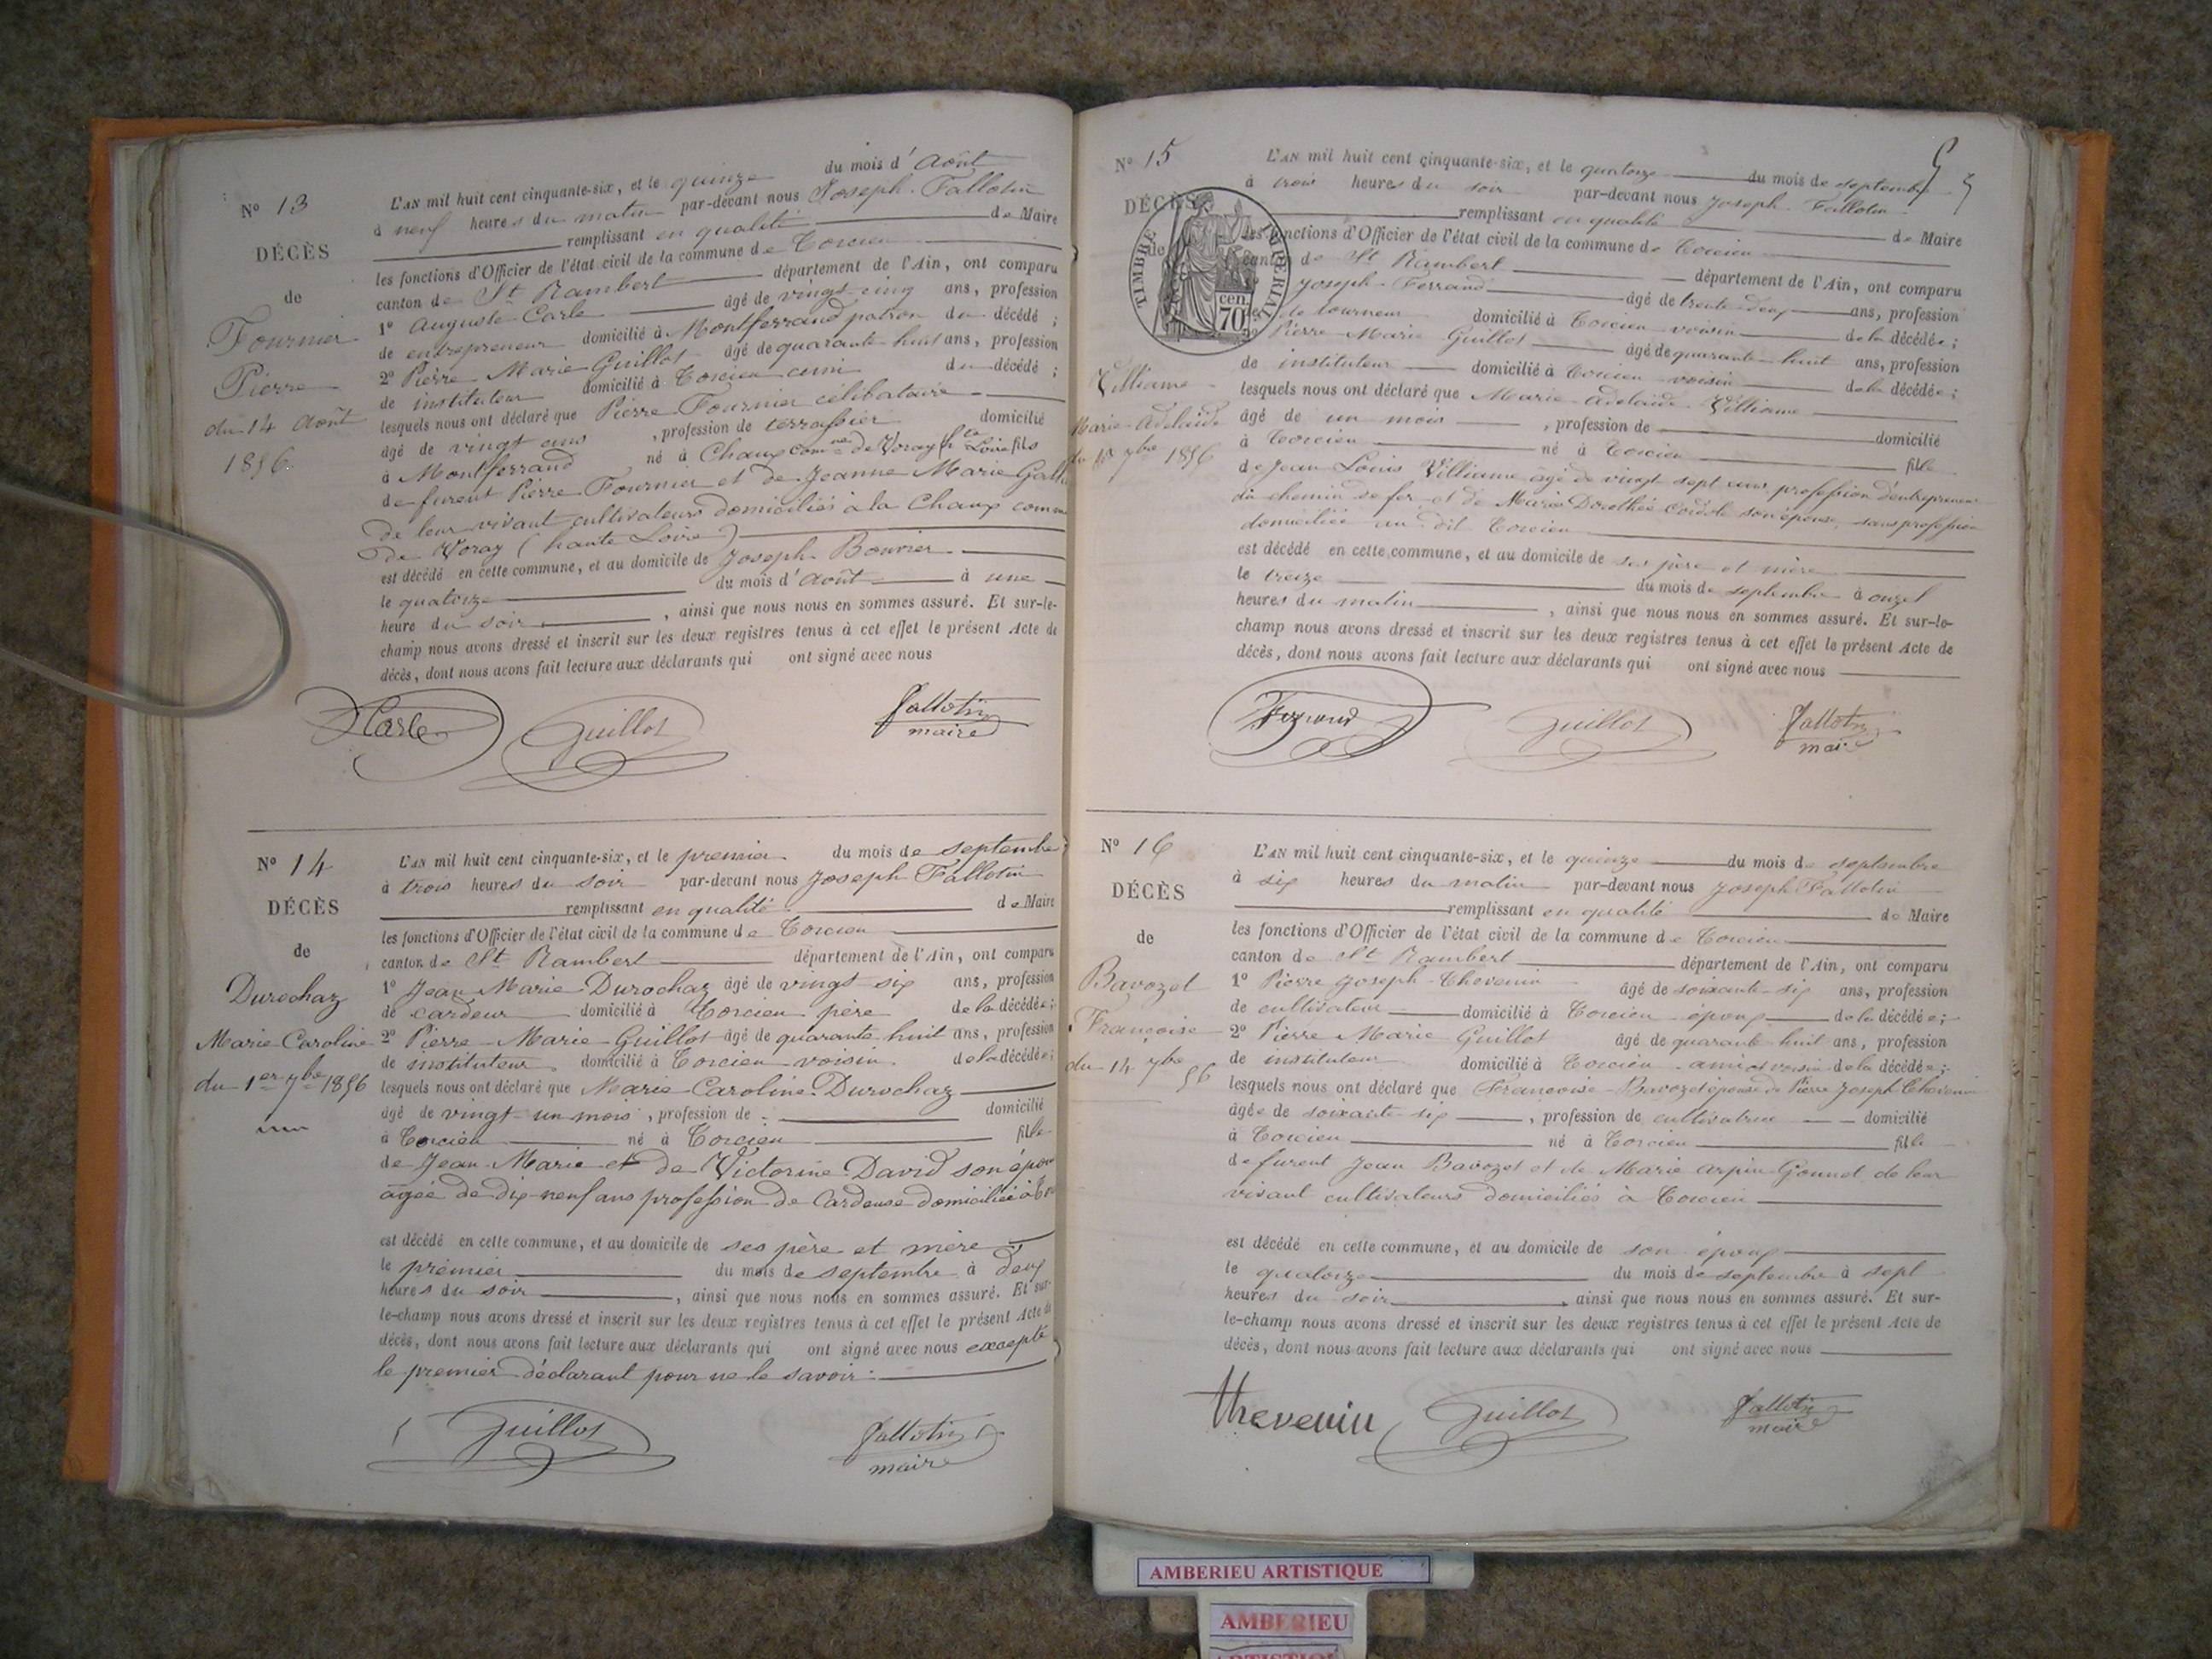 N° 13
DÉCÈS
de
Fournier
Pierre
du 14 Août
1856.
L'AN mil huit cent cinquante-six, et le quinze du mois d'Août
à neuf heures du matin par-devant nous Joseph Fallotin
remplissant en qualité de Maire
les fonctions d'Officier de l'état civil de la commune de Torcieu
canton de St Rambert département de l'Ain, ont comparu
1° Auguste Carle âgé de vingt cinq ans, profession
de entrepreneur domicilié à Montferrand patron du décédé ;
2° Pierre Marie Guillot âgé de quarante huit ans, profession
de instituteur domicilié à Torcieu ami du décédé ;
lesquels nous ont déclaré que Pierre Fournier célibataire
âgé de vingt ans , profession de terrassier domicilié
à Montferrand né à Chaux comne de Voray hte Loire fils
de furent Pierre Fournier et de Jeanne Marie
de leur vivant cultivateurs domiciliés à la Chaux
de Voray (haute Loire)
est décédé en cette commune, et au domicile de Joseph Bouvier
le quatorze du mois d'Août à une
heure du soir , ainsi que nous nous en sommes assuré. Et sur-le-
champ nous avons dressé et inscrit sur les deux registres tenus à cet effet le présent Acte de
décès, dont nous avons fait lecture aux déclarants qui ont signé avec nous
Carle Guillot Fallotin
maire
N° 14
DÉCÈS
de
Durochaz
Marie Caroline
du 1er 7bre 1856
L'AN mil huit cent cinquante-six, et le premier du mois de septembre
à trois heures du soir par-devant nous Joseph Fallotin
remplissant en qualité de Maire
les fonctions d'Officier de l'état civil de la commune de Torcieu
canton de St Rambert département de l'Ain, ont comparu
1° Jean Marie Durochaz âgé de vingt six ans, profession
de cardeur domicilié à Torcieu père de la décédée ;
2° Pierre Marie Guillot âgé de quarante huit ans, profession
de instituteur domicilié à Torcieu voisin de la décédée ;
lesquels nous ont déclaré que Marie Caroline Durochaz
âgé de vingt un mois , profession de domicilié
à Torcieu né à Torcieu fille
de Jean Marie et de Victorine David son
âgée de dix neuf ans profession de Cardeuse domiciliée à
est décédé en cette commune, et au domicile de ses père et mère
le premier du mois de septembre à deux
heures du soir , ainsi que nous nous en sommes assuré. Et sur-
le-champ nous avons dressé et inscrit sur les deux registres tenus à cet effet le présent Acte de
décès, dont nous avons fait lecture aux déclarants qui ont signé avec nous excepté
le premier déclarant pour ne le savoir.
Guillot Fallotin
maire
N° 15
DÉCÈS
de
TIMBRE IMPERIAL
cen.
70
Villiame
Marie-Adelaïde
1856
L'AN mil huit cent cinquante-six, et le quatorze du mois de septembre
à trois heures du soir par-devant nous Joseph Fallotin
remplissant en qualité de Maire
les fonctions d'Officier de l'état civil de la commune de Torcieu
canton de St Rambert département de l'Ain, ont comparu
Joseph Ferrand âgé de trente deux ans, profession
de tourneur domicilié à Torcieu voisin de la décédée ;
2° Pierre Marie Guillot âgé de quarante huit ans, profession
de instituteur domicilié à Torcieu voisin de la décédée ;
lesquels nous ont déclaré que Marie Adelaïde Villiame
âgé de un mois , profession de domicilié
à Torcieu né à Torcieu fille
de Jean Louis Villiame âgé de vingt sept ans profession d'entrepreneur
du chemin de fer et de Marie Dorothée son épouse, sans profession
domiciliée au dit Torcieu
est décédé en cette commune, et au domicile de ses père et mère
le treize du mois de septembre à onze
heures du matin , ainsi que nous nous en sommes assuré. Et sur-le-
champ nous avons dressé et inscrit sur les deux registres tenus à cet effet le présent Acte de
décès, dont nous avons fait lecture aux déclarants qui ont signé avec nous
Ferrand Guillot Fallotin
maire
N° 16
DÉCÈS
de
Bavozet
Françoise
du 14 7bre 56
L'AN mil huit cent cinquante-six, et le quinze du mois de septembre
à six heures du matin par-devant nous Joseph Fallotin
remplissant en qualité de Maire
les fonctions d'Officier de l'état civil de la commune de Torcieu
canton de St Rambert département de l'Ain, ont comparu
1° Pierre Joseph Thevenin âgé de soixante six ans, profession
de cultivateur domicilié à Torcieu époux de la décédée ;
2° Pierre Marie Guillot âgé de quarante huit ans, profession
de instituteur domicilié à Torcieu ami et voisin de la décédée ;
lesquels nous ont déclaré que Françoise Bavozet épouse de Pierre Joseph Thevenin
âgée de soixante six , profession de cultivatrice domicilié
à Torcieu né à Torcieu fille
de furent Jean Bavozet et de Marie Arpin Gonnet de leur
vivant cultivateurs domiciliés à Torcieu
est décédé en cette commune, et au domicile de son époux
le quatorze du mois de septembre à sept
heures du soir , ainsi que nous nous en sommes assuré. Et sur-
le-champ nous avons dressé et inscrit sur les deux registres tenus à cet effet le présent Acte de
décès, dont nous avons fait lecture aux déclarants qui ont signé avec nous
thevenin Guillot Fallotin
maire
AMBERIEU ARTISTIQUE
AMBERIEU
ARTISTIQUE